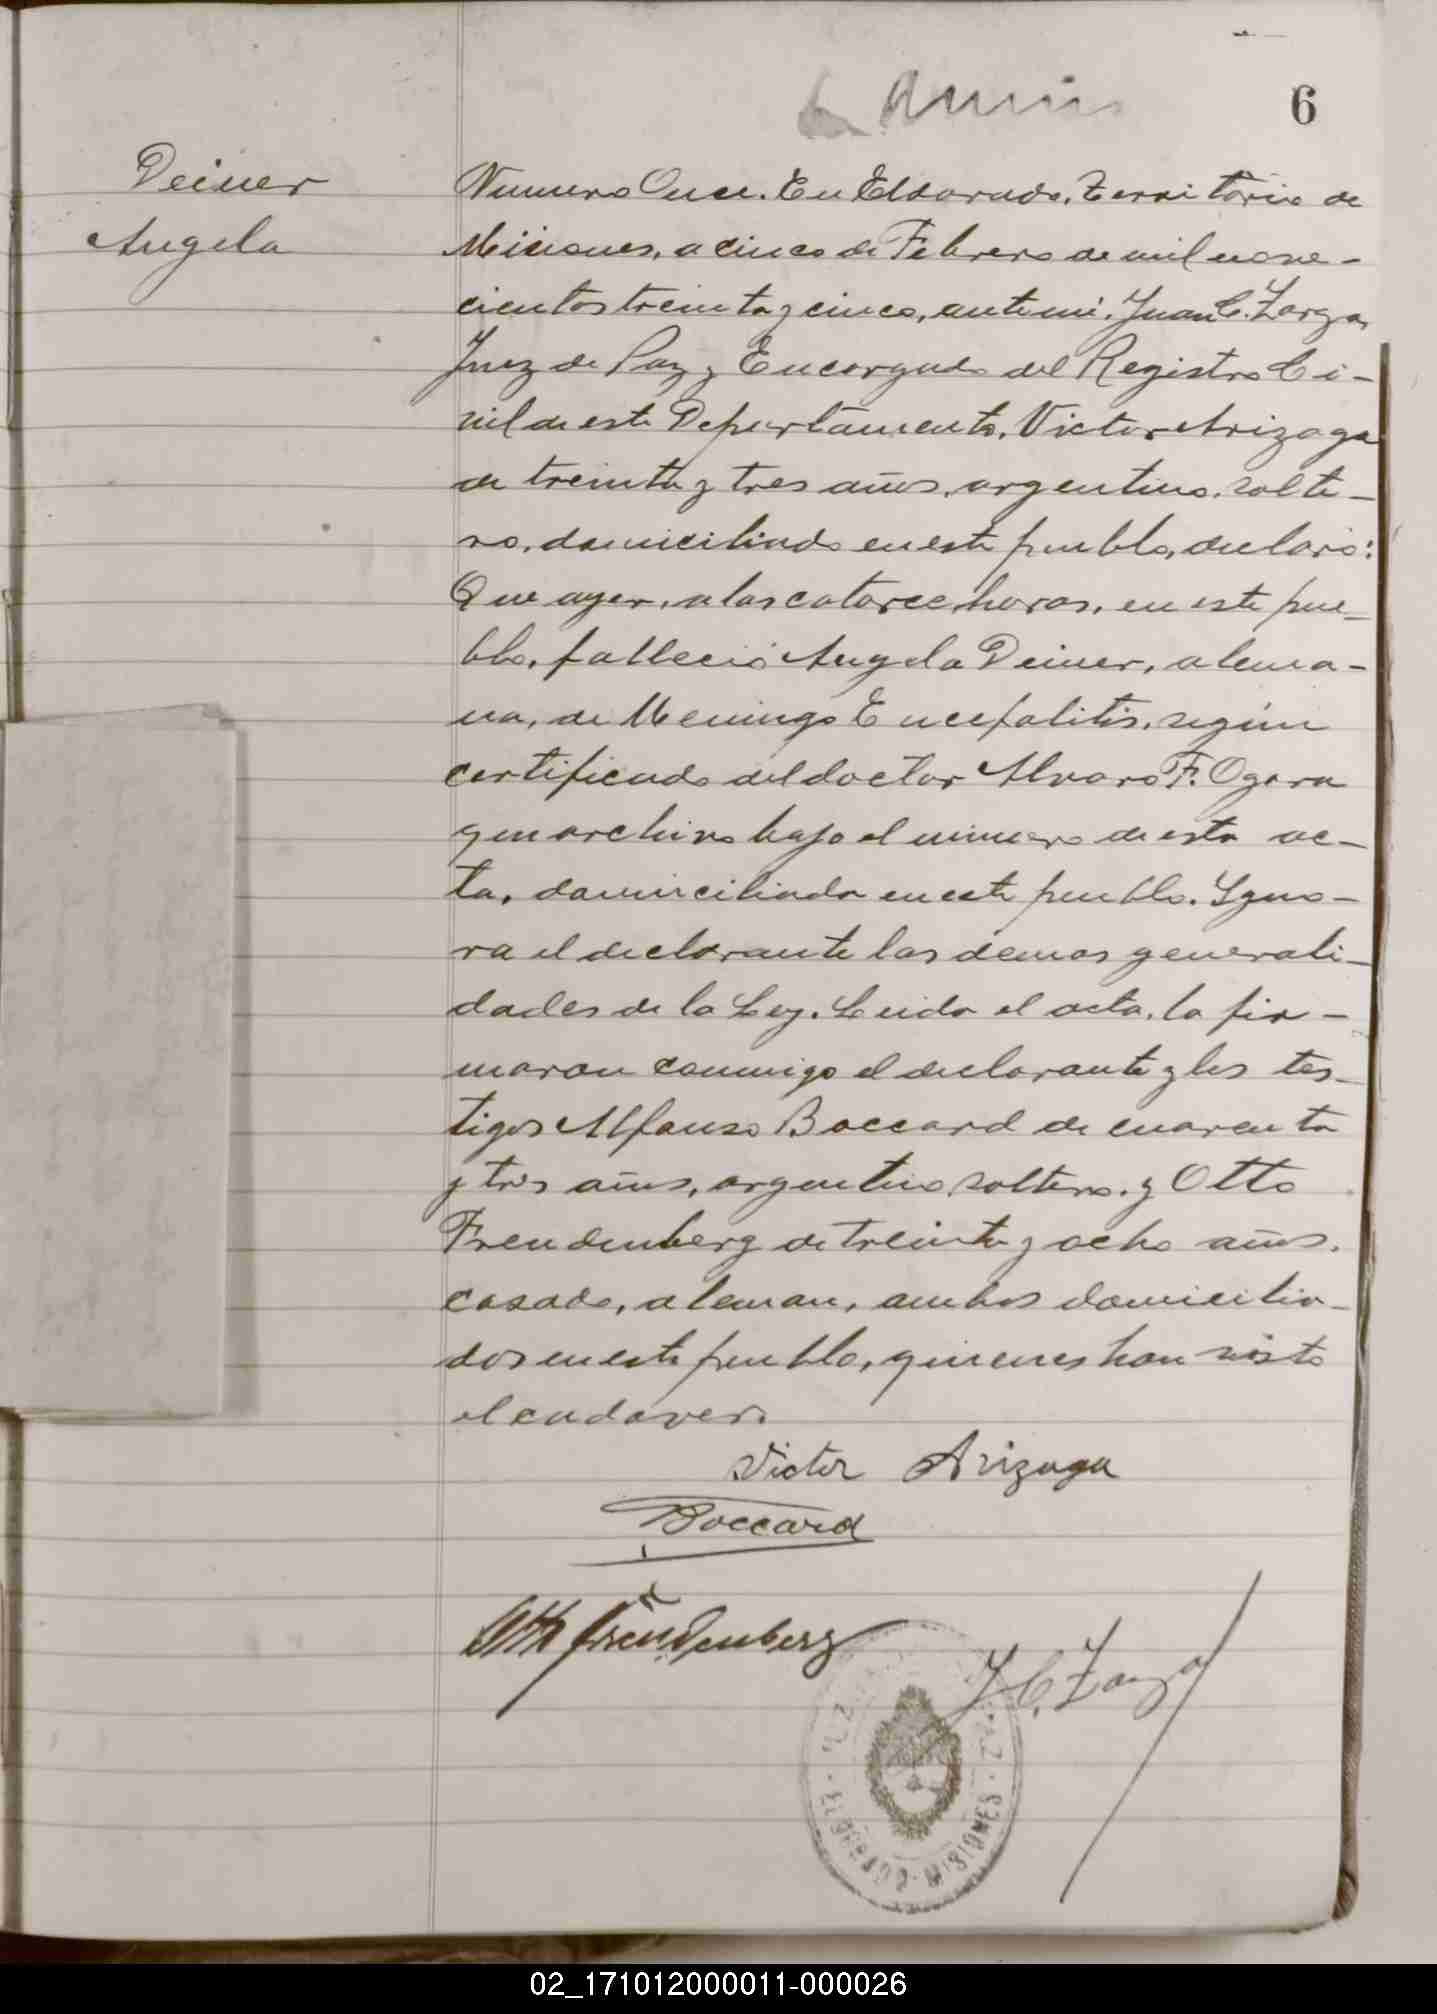 6
Deiner
Angela
Numero Once. En Eldorado, Territorio de
Misiones, a cinco de Febrero de mil nove-
cientos treinta y cinco, ante mi, Juan C. Zarza,
Juez de Paz y Encargado del Registro Ci-
vil de este Departamento, Victor Arizaga
de treinta y tres años, argentino, solte-
ro, domiciliado en este pueblo, declaró:
Que ayer, a las catorce horas, en este pue-
blo, falleció Angela Deiner, alema-
na, de Meningo Encefalitis, según
certificado del doctor Alvaro F. Ogara
que archivo bajo el número de esta ac-
ta, domiciliada en este pueblo. Igno-
ra el declarante las demas generali-
dades de la Ley. Leida el acta, la fir-
maron conmigo el declarante y los tes-
tigos Alfonso Boccard de cuarenta
y tres años, argentino, soltero, y Otto
Freudenberg de treinta y ocho años,
casado, aleman, ambos domicilia-
dos en este pueblo, quienes han visto
el cadaver.
Victor Arizaga
Boccard
Otto Freudenberg
J. C. Zarza
ELDORADO - MISIONES
02_171012000011-000026